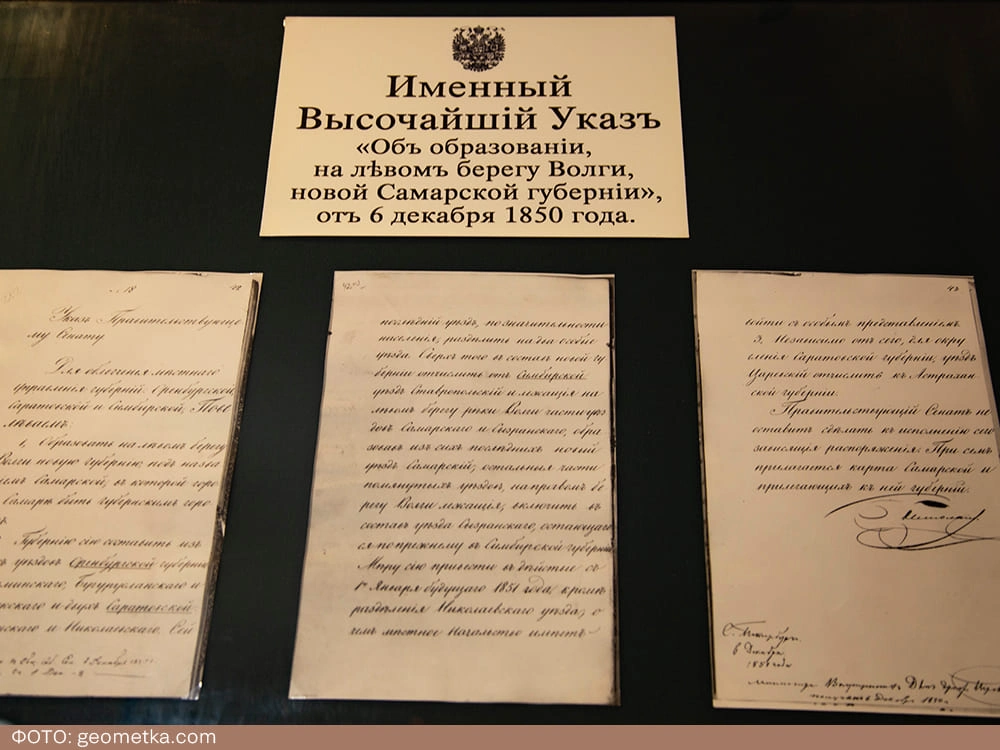 Именный
Высочайшій Указъ
«Объ образованіи,
на лѣвомъ берегу Волги,
новой Самарской губерніи»,
отъ 6 декабря 1850 года.
18
42
Указъ Правительствующе
му Сенату.
Для облегченія мѣстнаго
управленія губерній Оренбургской,
Саратовской и Симбирской, Пове
лѣваемъ:
1. Образовать на лѣвомъ берегу
Волги новую губернію подъ назва
емъ Самарской, въ которой горо
Самарѣ быть губернскимъ горо
Губернію сію составить изъ
уѣздовъ Оренбургской губерніи
минскаго, Бугурусланскаго и
скаго и двухъ Саратовской
нскаго и Николаевскаго. Сей
послѣдній уѣздъ, по значительности
населенія, раздѣлить на два особые
уѣзда. Сверхъ того въ составъ новой гу
берніи отчислить отъ Симбирской
уѣздъ Ставропольскій и лежащія на
лѣвомъ берегу рѣки Волги части уѣз
довъ Самарскаго и Сызранскаго, обра
зовавъ изъ сихъ послѣднихъ новый
уѣздъ Самарскій; остальныя части
помянутыхъ уѣздовъ, на правомъ бе
регу Волги лежащія, включить въ
составъ уѣзда Сызранскаго, остающаго
ся по прежнему въ Симбирской губерніи.
Мѣру сію привести въ дѣйствіе съ
1го Января будущаго 1851 года, кромѣ
раздѣленія Николаевскаго уѣзда, о
чемъ мѣстное Начальство имѣетъ
43
войти съ особымъ представленіемъ.
3. Независимо отъ сего, для окру
гленія Саратовской губерніи, уѣздъ
Царевскій отчислить къ Астрахан
ской губерніи.
Правительствующій Сенатъ не
оставитъ сдѣлать къ исполненію сего
зависящія распоряженія. При семъ
прилагается карта Самарской и
прилегающихъ къ ней губерній.
Николай
С. Петербургъ.
6 Декабря
Министръ Внутреннихъ Дѣлъ
ФОТО: geometka.com